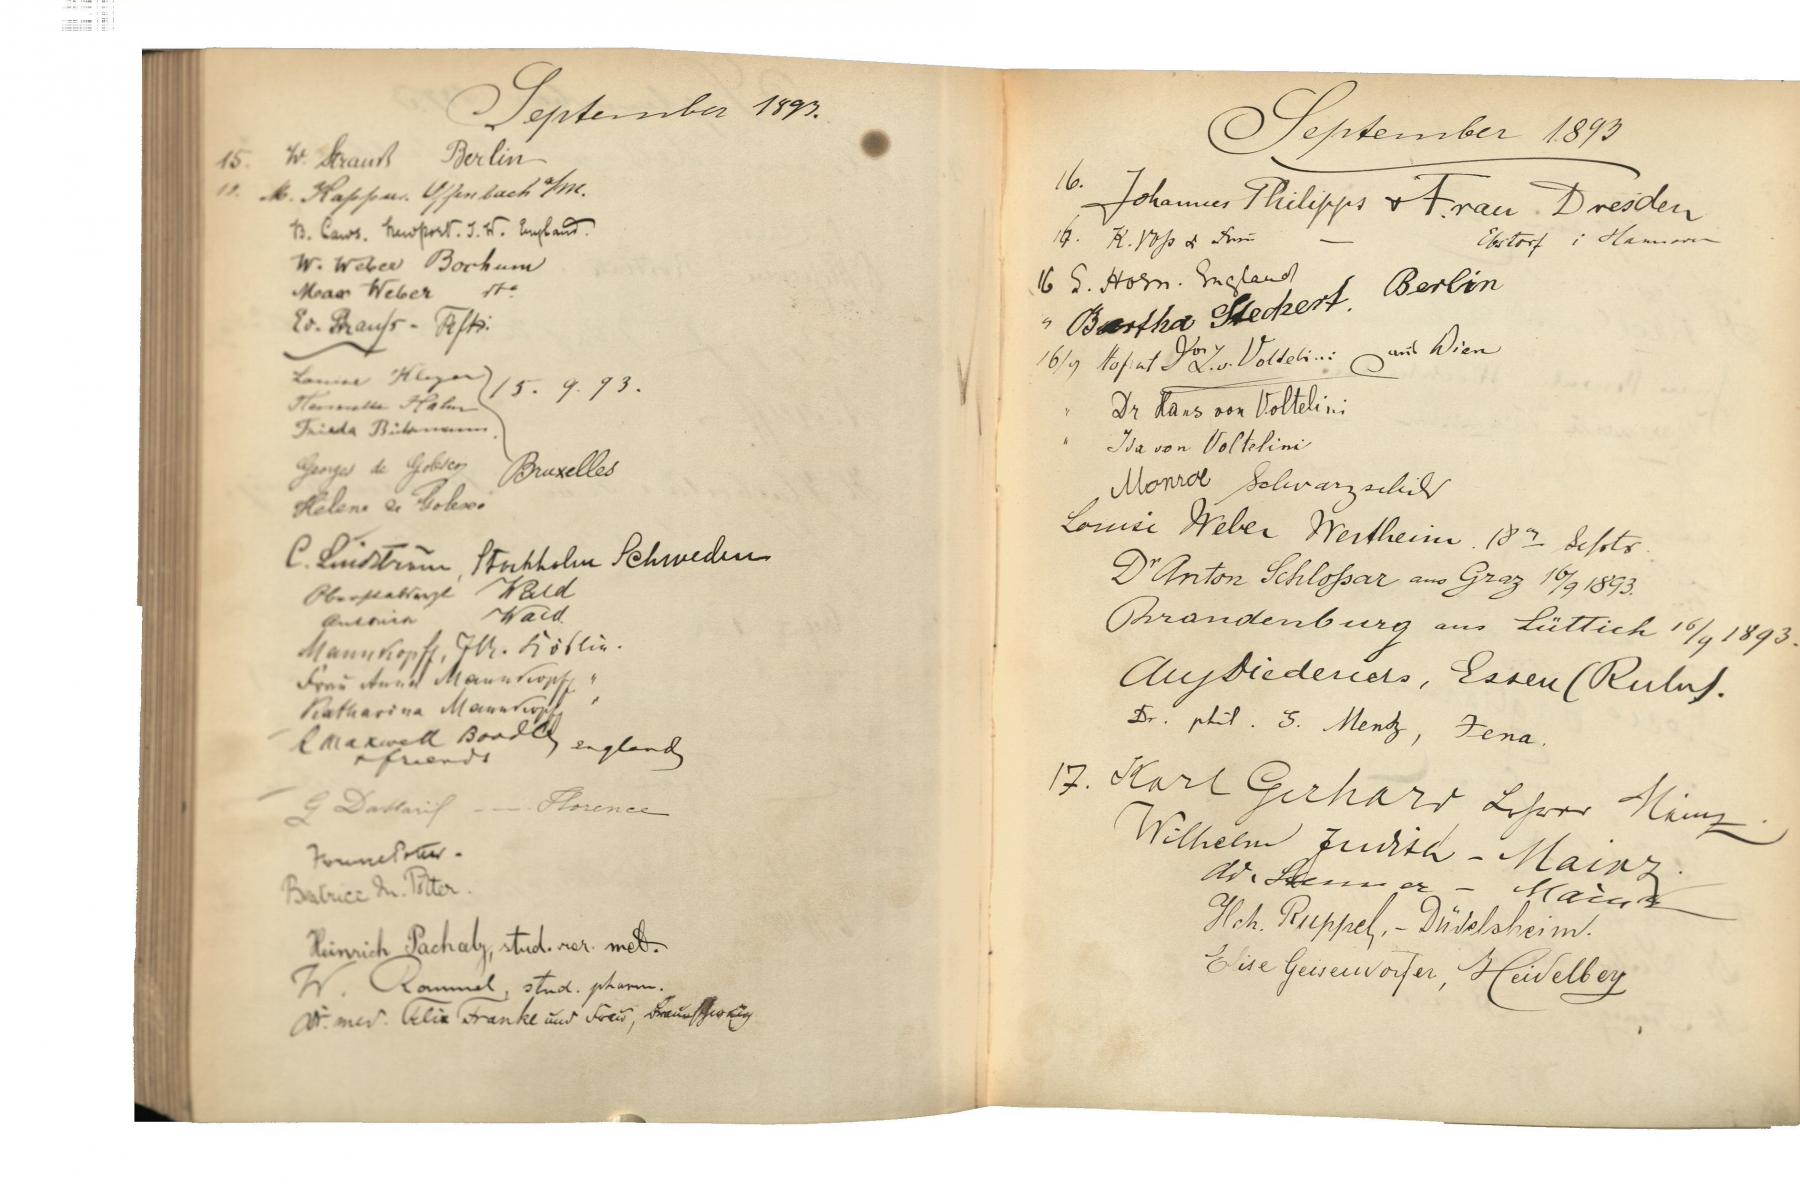 September 1893.
15. W. Strauß Berlin
M. Offenbach a/M.
B. Caws. Newport. I. W. England.
W. Weber Bochum
Max Weber dto
Ed. Strauß -
Louise 15. 9. 93.
Henriette Hahn
Frieda
Georges de Bruxelles
Helene de
C. Lindström, Stockholm Schweden
Oberstabsarzt Wald
Wald
Mannkopff, Köslin.
Frau Anna Mannkopff "
Katharina Mannkopff "
Maxwell england
& friends
G -- Florence
Beatrice M. Potter.
Heinrich Pachaly, stud. rer. met.
W. Rommel, stud. pharm.
Dr. med. Felix Franke und Frau, Braunschweig
September 1893
16. Johannes Philipps & Frau Dresden
16. K. Voß & Frau — Ebstorf i Hannover
16 G. Horn. England
" Bertha Steckert. Berlin
16/9 Hofrat v. Voltelini aus Wien
" Dr Hans von Voltelini
" Ida von Voltelini
Monroe Schwarzschild
Louise Weber Wertheim. 18 Septr.
Dr Anton Schloßar aus Graz 16/9 1893.
Brandenburg aus Lüttich 16/9 1893.
Aug Diederichs, Essen (Ruhr).
Dr. phil. G. Mentz, Jena.
17. Karl Gerhard Lehrer Mainz.
Wilhelm Judith - Mainz.
Ad. - Mainz
Hch. Ruppel, - Düdelsheim.
Elise Geisendörfer, Heidelberg